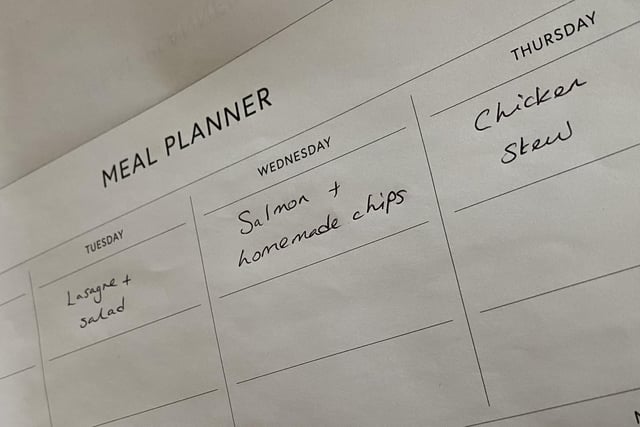 MEAL PLANNER
TUESDAY
Lasagne +
salad
WEDNESDAY
Salmon +
homemade chips
THURSDAY
Chicken
Stew